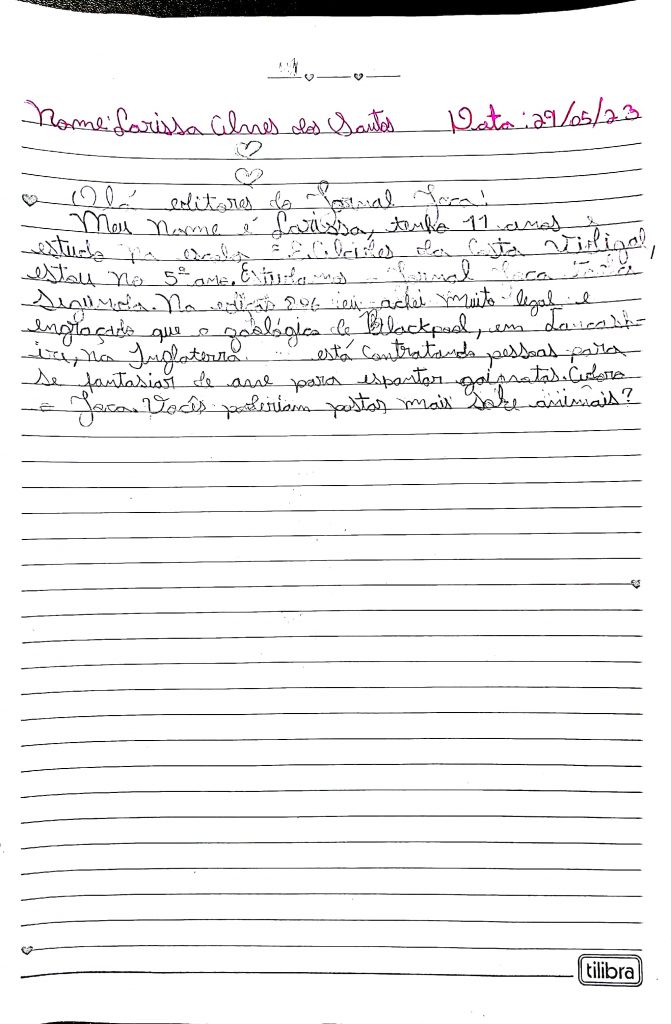 Nome: Larissa Alves dos Santos Data: 29/05/23
Olá editores do Jornal Joca!
Meu nome é Larissa, tenho 11 anos e
estudo na escola E.E. Alcides da Costa Vidigal,
estou no 5º ano. Estudamos o Jornal Joca toda
segunda. Na edição 206 eu achei muito legal e
engraçado que o zoológico de Blackpool, em Lancash-
ire, na Inglaterra está contratando pessoas para
se fantasiar de ave para espantar gaivotas. Adoro
o Joca. Vocês poderiam postar mais sobre animais?
tilibra